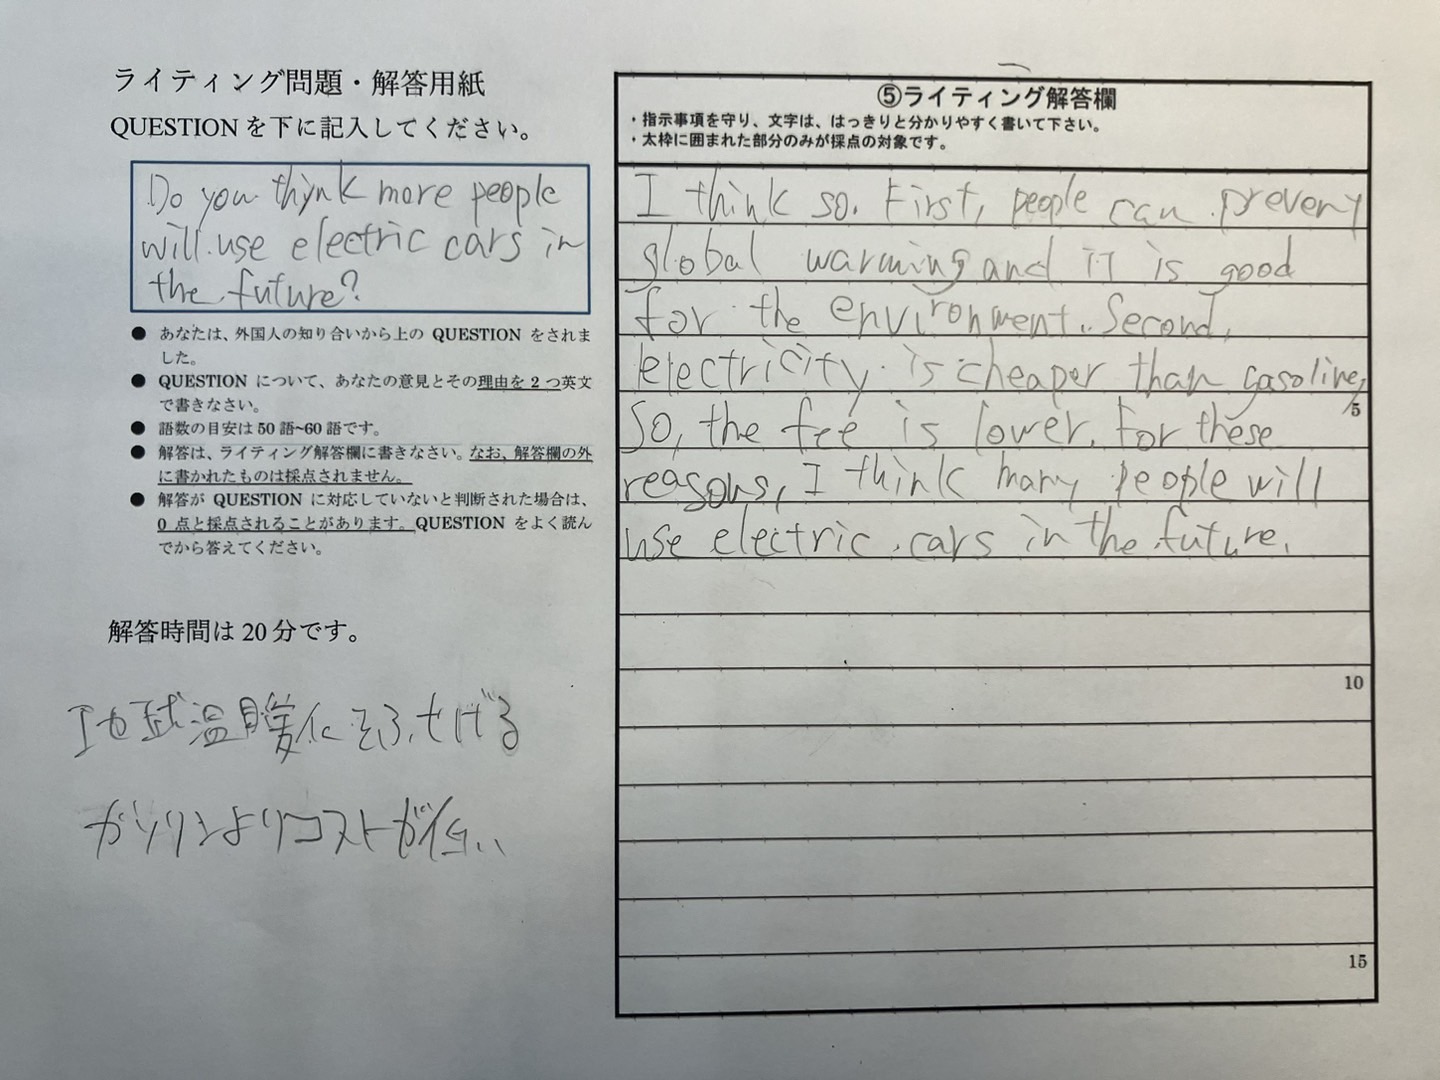 ライティング問題・解答用紙
QUESTION を下に記入してください。
Do you thynk more people
will use electric cars in
the future?
● あなたは、外国人の知り合いから上の QUESTION をされま
した。
● QUESTION について、あなたの意見とその理由を 2 つ英文
で書きなさい。
● 語数の目安は 50 語~60 語です。
● 解答は、ライティング解答欄に書きなさい。なお、解答欄の外
に書かれたものは採点されません。
● 解答が QUESTION に対応していないと判断された場合は、
0 点と採点されることがあります。QUESTION をよく読ん
でから答えてください。
解答時間は 20 分です。
地球温暖化をふせげる
ガソリンよりコストが低い
⑤ライティング解答欄
・指示事項を守り、文字は、はっきりと分かりやすく書いて下さい。
・太枠に囲まれた部分のみが採点の対象です。
I think so. First, people can preveny
global warming and it is good
for the environment. Second,
electricity is cheaper than gasoline,
5
So, the fee is lower. For these
reasons, I think many people will
use electric cars in the future.
10
15